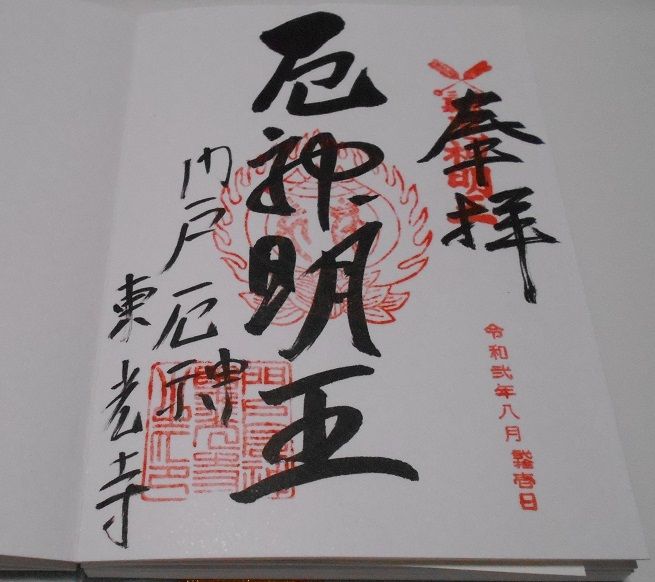 奉拝
令和弐年八月弐拾壱日
厄神明王
門戸厄神
東光寺